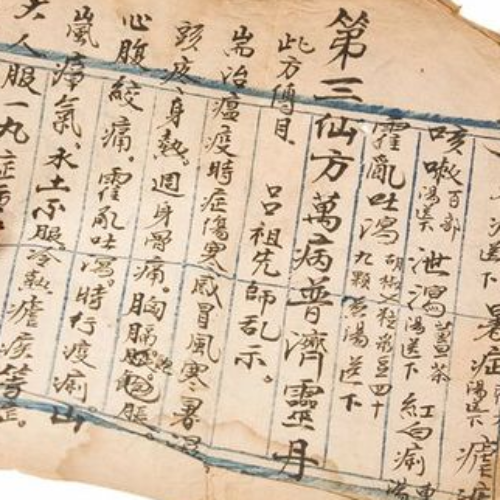 送下 暑症 湯送下 瘧疾
咳嗽 百部湯送下 泄瀉 薑茶湯送下 紅白痢
霍亂吐瀉 胡椒 九顆 煎湯送下
第三仙方 萬病普濟靈丹
此方傳自 呂祖先師乩示。
耑治瘟疫時症傷寒感冒風寒暑濕
頭疼身熱。週身骨痛。胸膈飽脹
心腹絞痛。霍亂吐瀉。時行疫痢山
嵐瘴氣。水土不服冷熱瘧疾等症。
大人服一丸症重